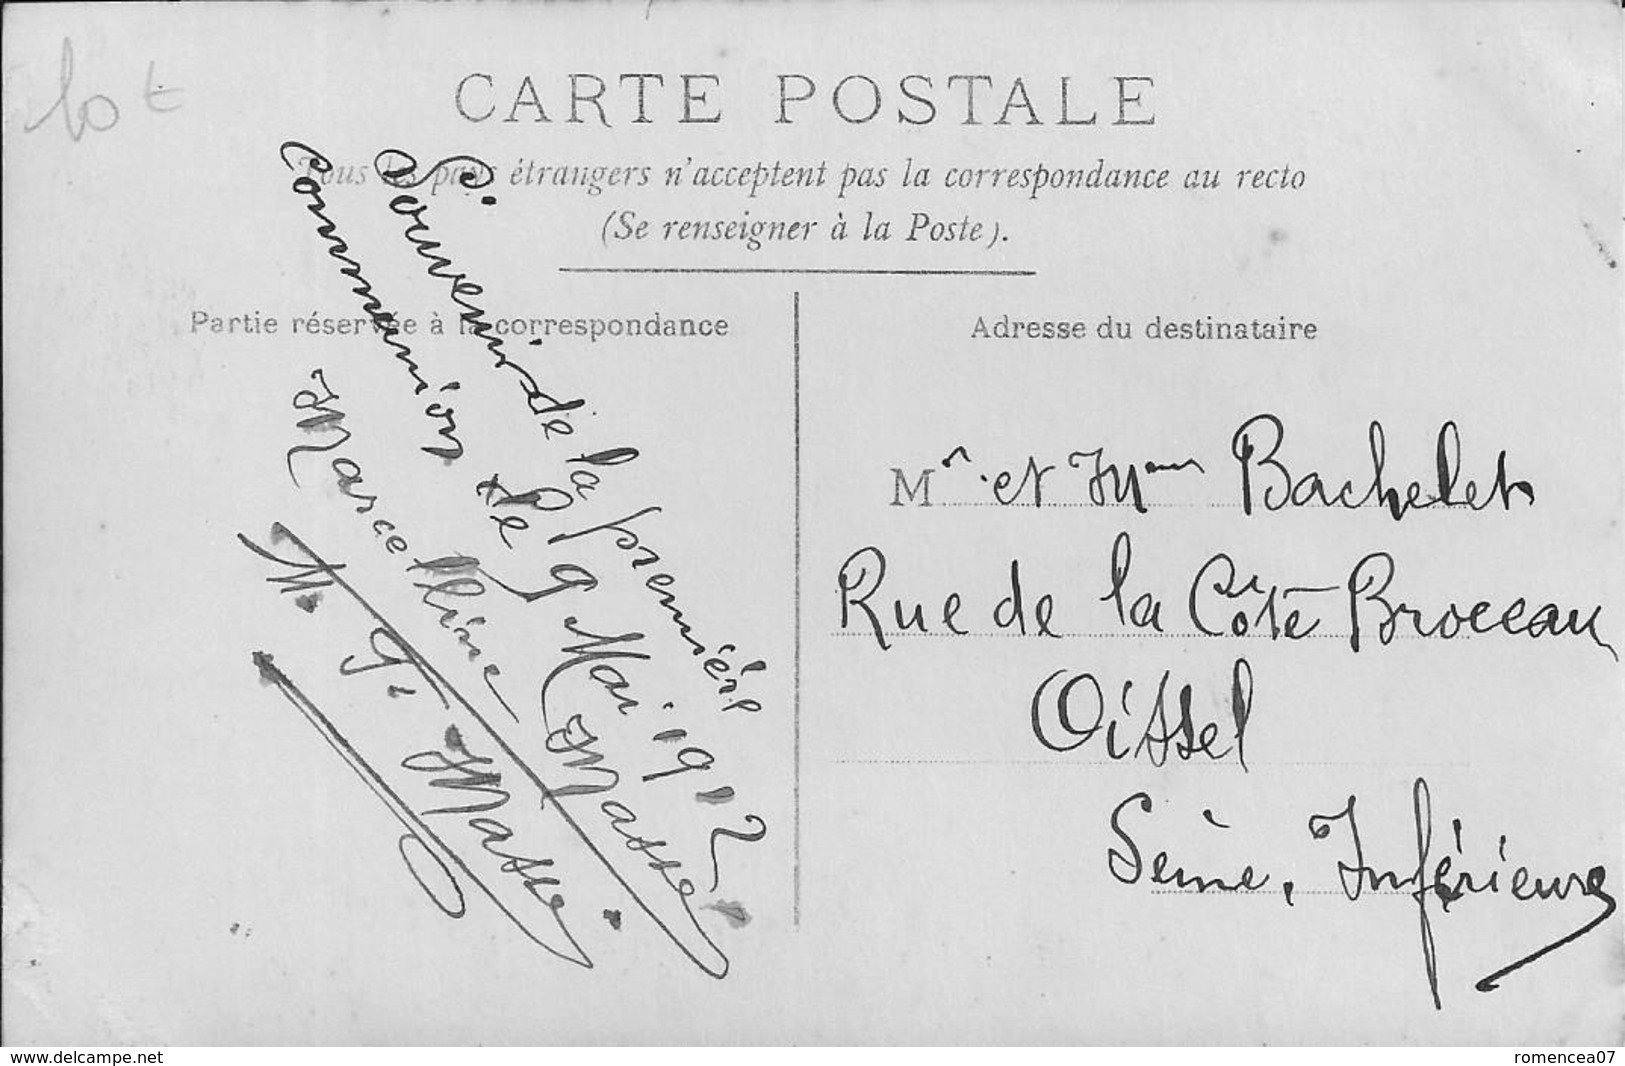 10 t
CARTE POSTALE
Tous les pays étrangers n'acceptent pas la correspondance au recto
(Se renseigner à la Poste).
Partie réservée à la correspondance
Souvenir de la première
Communion le 9 Mai 1912
Marcelline Masse
M. G. Masse
Adresse du destinataire
Mr et Mme Bachelet
Rue de la Côte Broceau
Oissel
Seine, Inférieure
www.delcampe.net
romencea07